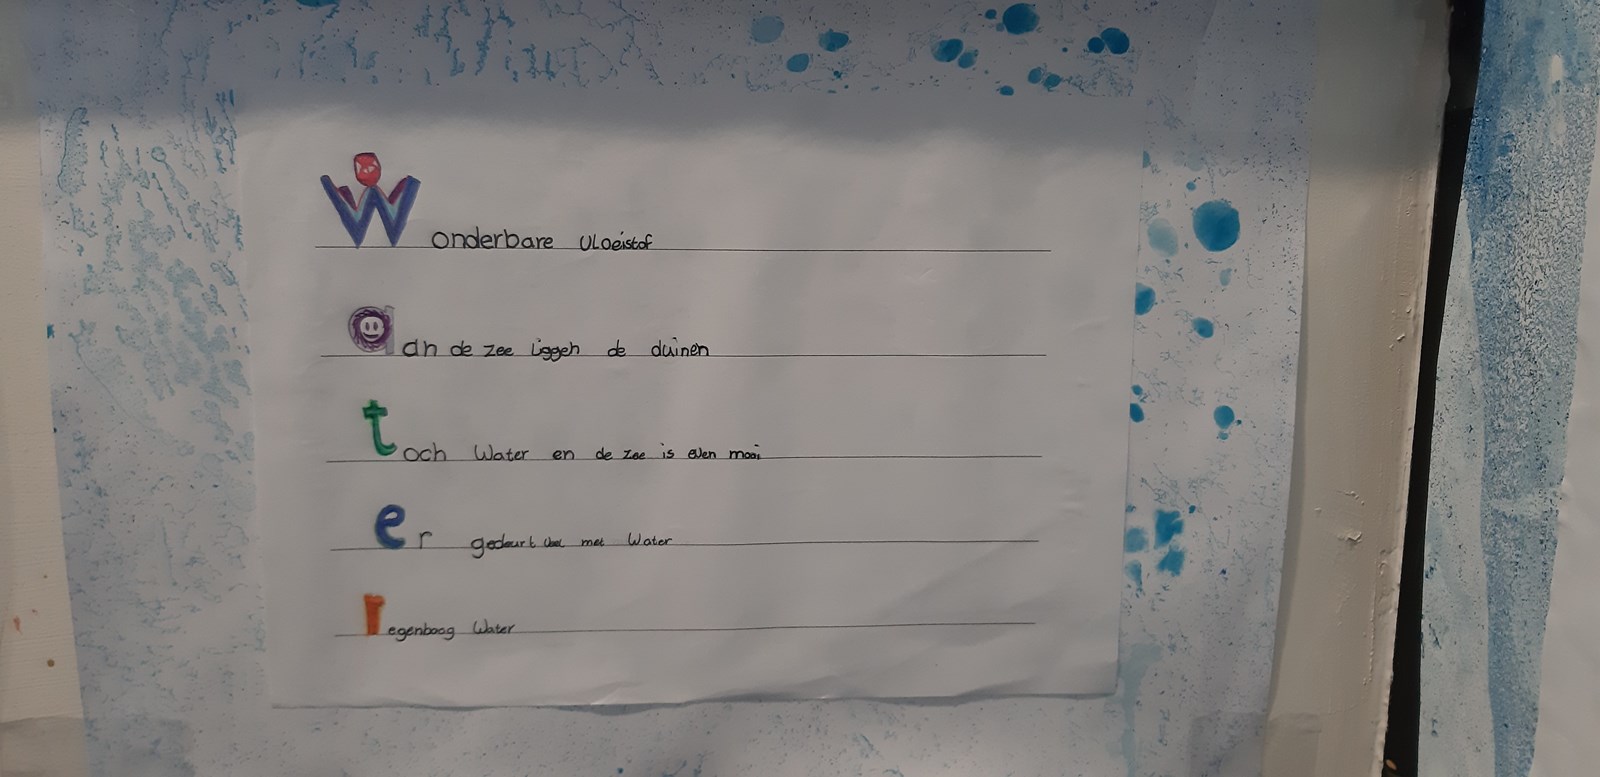 Wonderbare vloeistof
aan de zee liggen de duinen
toch Water en de zee is even mooi
er gebeurt veel met Water
regenboog Water